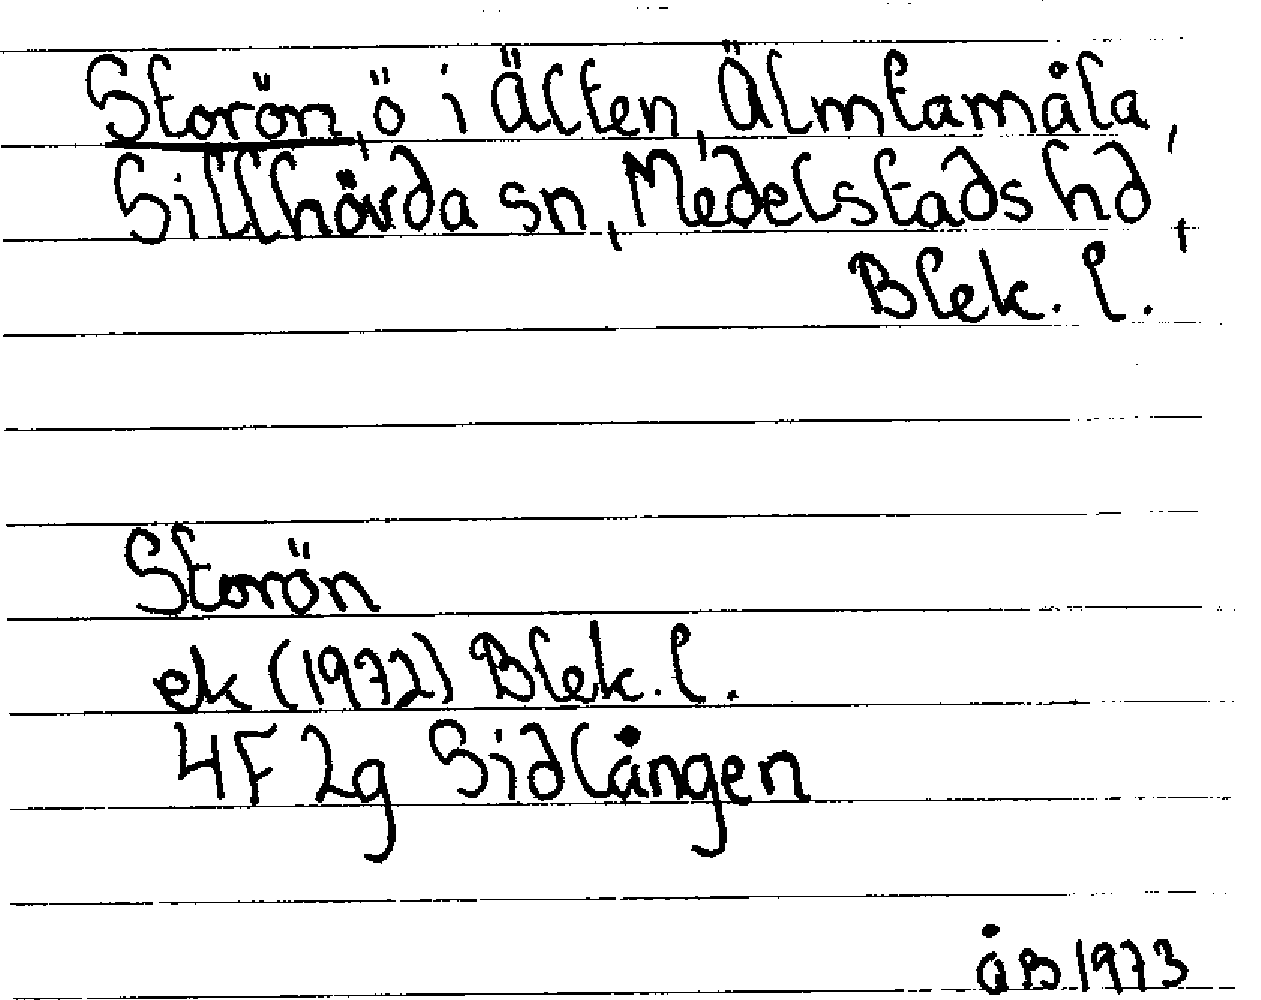 Storön, ö i Älten, Älmtamåla,
Sillhövda sn, Medelstads hd,
Blek. l.
Storön
ek (1972) Blek. l.
4F 2g Sidlången
åB 1973